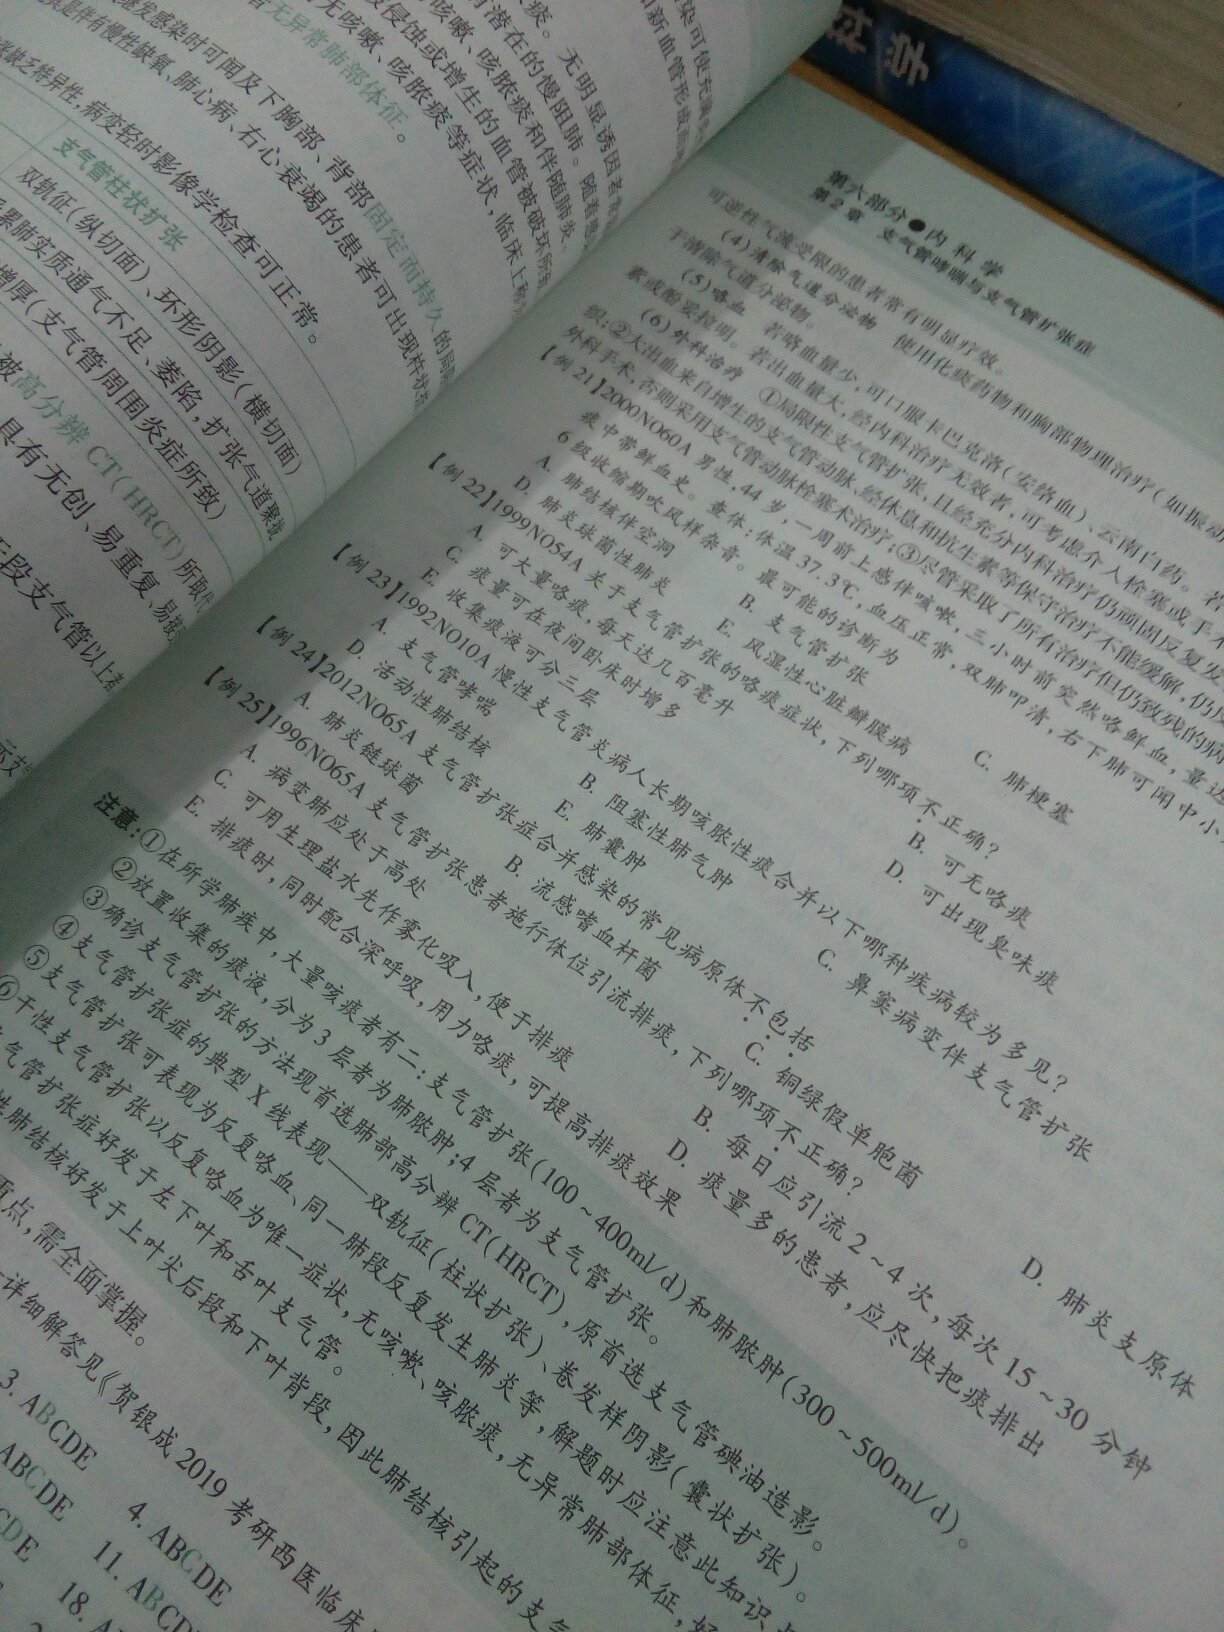 第六部分●内科学
第2章 支气管哮喘与支气管扩张症
可逆性气流受限的患者常有明显疗效。
(4)清除气道分泌物 使用化痰药物和胸部物理治疗(如振动
于清除气道分泌物。
(5)咯血 若咯血量少,可口服卡巴克洛(安络血)、云南白药。若
素或酚妥拉明。若出血量大,经内科治疗无效者,可考虑介入栓塞或手术
(6)外科治疗 ①局限性支气管扩张,且经充分内科治疗仍顽固反复发
织;②大出血来自增生的支气管动脉、经休息和抗生素等保守治疗不能缓解,仍反
外科手术,否则采用支气管动脉栓塞术治疗;③尽管采取了所有治疗但仍致残的病
【例21】2000NO60A 男性,44岁,一周前上感伴咳嗽,三小时前突然咯鲜血,量达
痰中带鲜血史。查体:体温37.3℃,血压正常,双肺叩清,右下肺可闻中小
6级收缩期吹风样杂音。最可能的诊断为
A. 肺结核伴空洞 B. 支气管扩张 C. 肺梗塞
D. 肺炎球菌性肺炎 E. 风湿性心脏瓣膜病
【例22】1999NO54A 关于支气管扩张的咯痰症状,下列哪项不正确?
A. 可大量咯痰,每天达几百毫升 B. 可无咯痰
C. 痰量可在夜间卧床时增多 D. 可出现臭味痰
E. 收集痰液可分三层
【例23】1992NO10A 慢性支气管炎病人长期咳脓性痰合并以下哪种疾病较为多见?
A. 支气管哮喘 B. 阻塞性肺气肿 C. 鼻窦病变伴支气管扩张
D. 活动性肺结核 E. 肺囊肿
【例24】2012NO65A 支气管扩张症合并感染的常见病原体不包括
A. 肺炎链球菌 B. 流感嗜血杆菌 C. 铜绿假单胞菌 D. 肺炎支原体
【例25】1996NO65A 支气管扩张患者施行体位引流排痰,下列哪项不正确?
A. 病变肺应处于高处 B. 每日应引流2~4次,每次15~30分钟
C. 可用生理盐水先作雾化吸入,便于排痰 D. 痰量多的患者,应尽快把痰排出
E. 排痰时,同时配合深呼吸,用力咯痰,可提高排痰效果
注意:①在所学肺疾中,大量咳痰者有二:支气管扩张(100~400ml/d)和肺脓肿(300~500ml/d)。
②放置收集的痰液,分为3层者为肺脓肿;4层者为支气管扩张。
③确诊支气管扩张的方法现首选肺部高分辨CT(HRCT),原首选支气管碘油造影。
④支气管扩张症的典型X线表现——双轨征(柱状扩张)、卷发样阴影(囊状扩张)。
⑤支气管扩张可表现为反复咯血、同一肺段反复发生肺炎等,解题时应注意此知识
⑥干性支气管扩张以反复咯血为唯一症状,无咳嗽、咳脓痰,无异常肺部体征,好
气管扩张症好发于左下叶和舌叶支气管。
肺结核好发于上叶尖后段和下叶背段,因此肺结核引起的支气
重点,需全面掌握。
详细解答见《贺银成2019考研西医临床
3. ABCDE 4. ABCDE
ABCDE 11. ABCD
CDE 18. A
染可使充满
和新血管形成
痰。无明显诱因者
潜在的慢阻肺。随着
咳嗽、咳脓痰和伴随肺炎。
侵蚀或增生的血管被破坏所
无咳嗽、咳脓痰等症状,临床上称
无异常肺部体征。
继发感染时可闻及下胸部、背部固定而持久的局
其是伴有慢性缺氧、肺心病、右心衰竭的患者可出现杵状
缺乏特异性,病变轻时影像学检查可正常。
支气管柱状扩张
双轨征(纵切面)、环形阴影(横切面)
累肺实质通气不足、萎陷,扩张气道聚拢
增厚(支气管周围炎症所致)
被高分辨CT(HRCT)所取代
具有无创、易重复、易接
段支气管以上